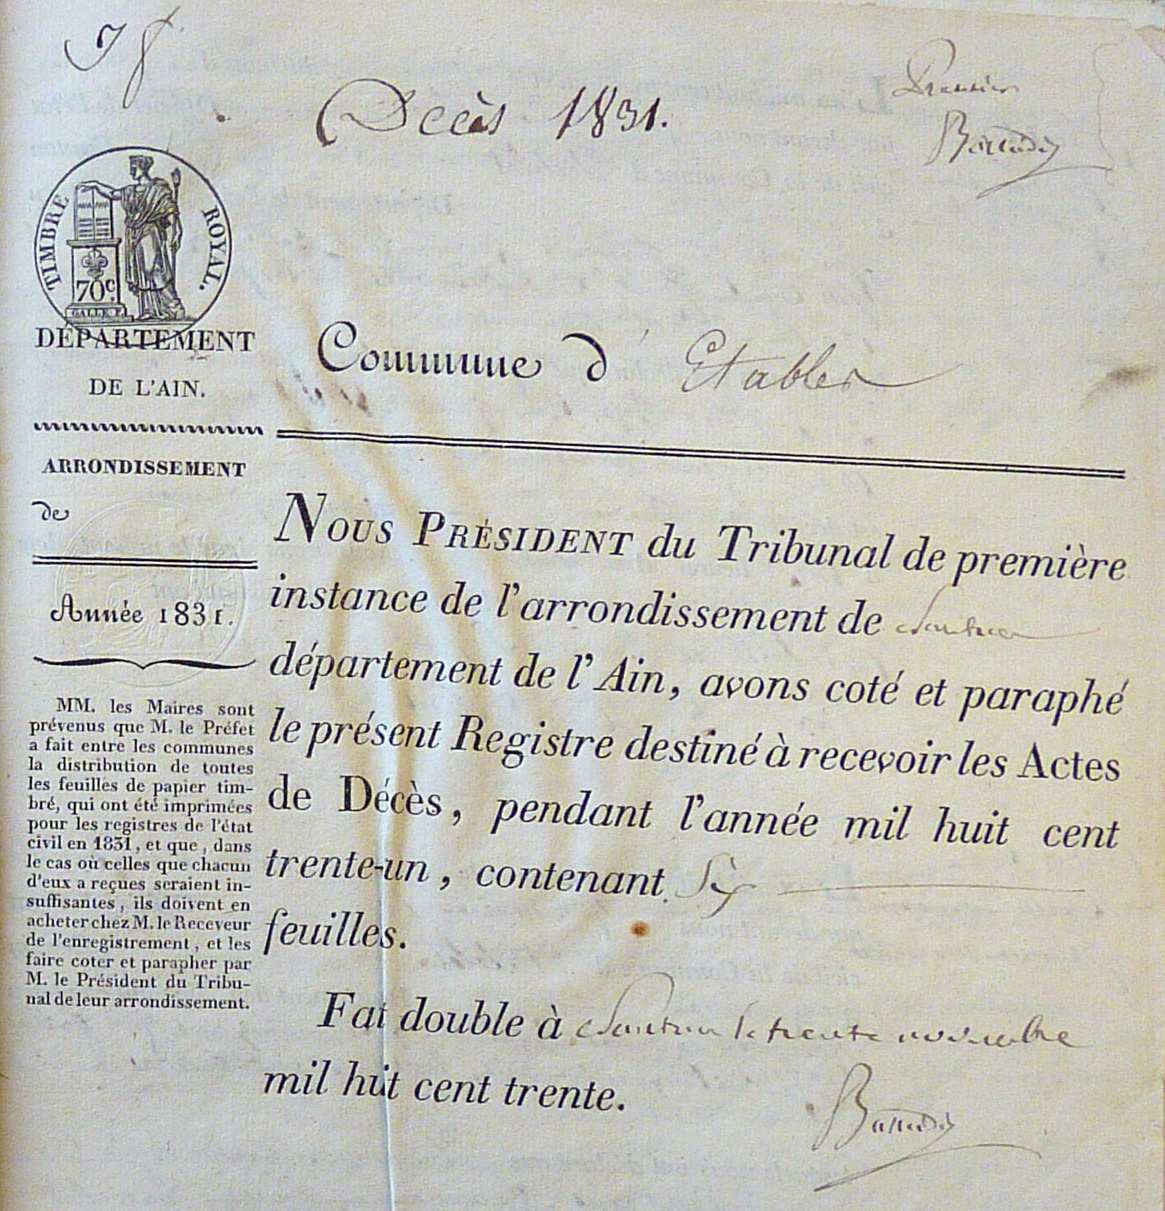 Décès 1831.
Premier
TIMBRE ROYAL.
70c
GALLE F.
DÉPARTEMENT
DE L'AIN.
Commune d' Etables
ARRONDISSEMENT
de
Année 1831.
MM. les Maires sont
prévenus que M. le Préfet
a fait entre les communes
la distribution de toutes
les feuilles de papier tim-
bré, qui ont été imprimées
pour les registres de l'état
civil en 1831, et que, dans
le cas où celles que chacun
d'eux a reçues seraient in-
suffisantes, ils doivent en
acheter chez M. le Receveur
de l'enregistrement, et les
faire coter et parapher par
M. le Président du Tribu-
nal de leur arrondissement.
NOUS PRÉSIDENT du Tribunal de première
instance de l'arrondissement de Nantua
département de l'Ain, avons coté et paraphé
le présent Registre destiné à recevoir les Actes
de Décès, pendant l'année mil huit cent
trente-un, contenant Six
feuilles.
Fai double à Nantua le trente novembre
mil huit cent trente.